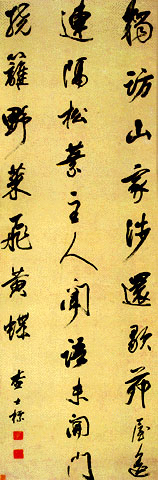 獨訪山家涉還歇茅屋
連隔松葉主人聞語未開門
繞籬野菜飛黃蝶 查士標